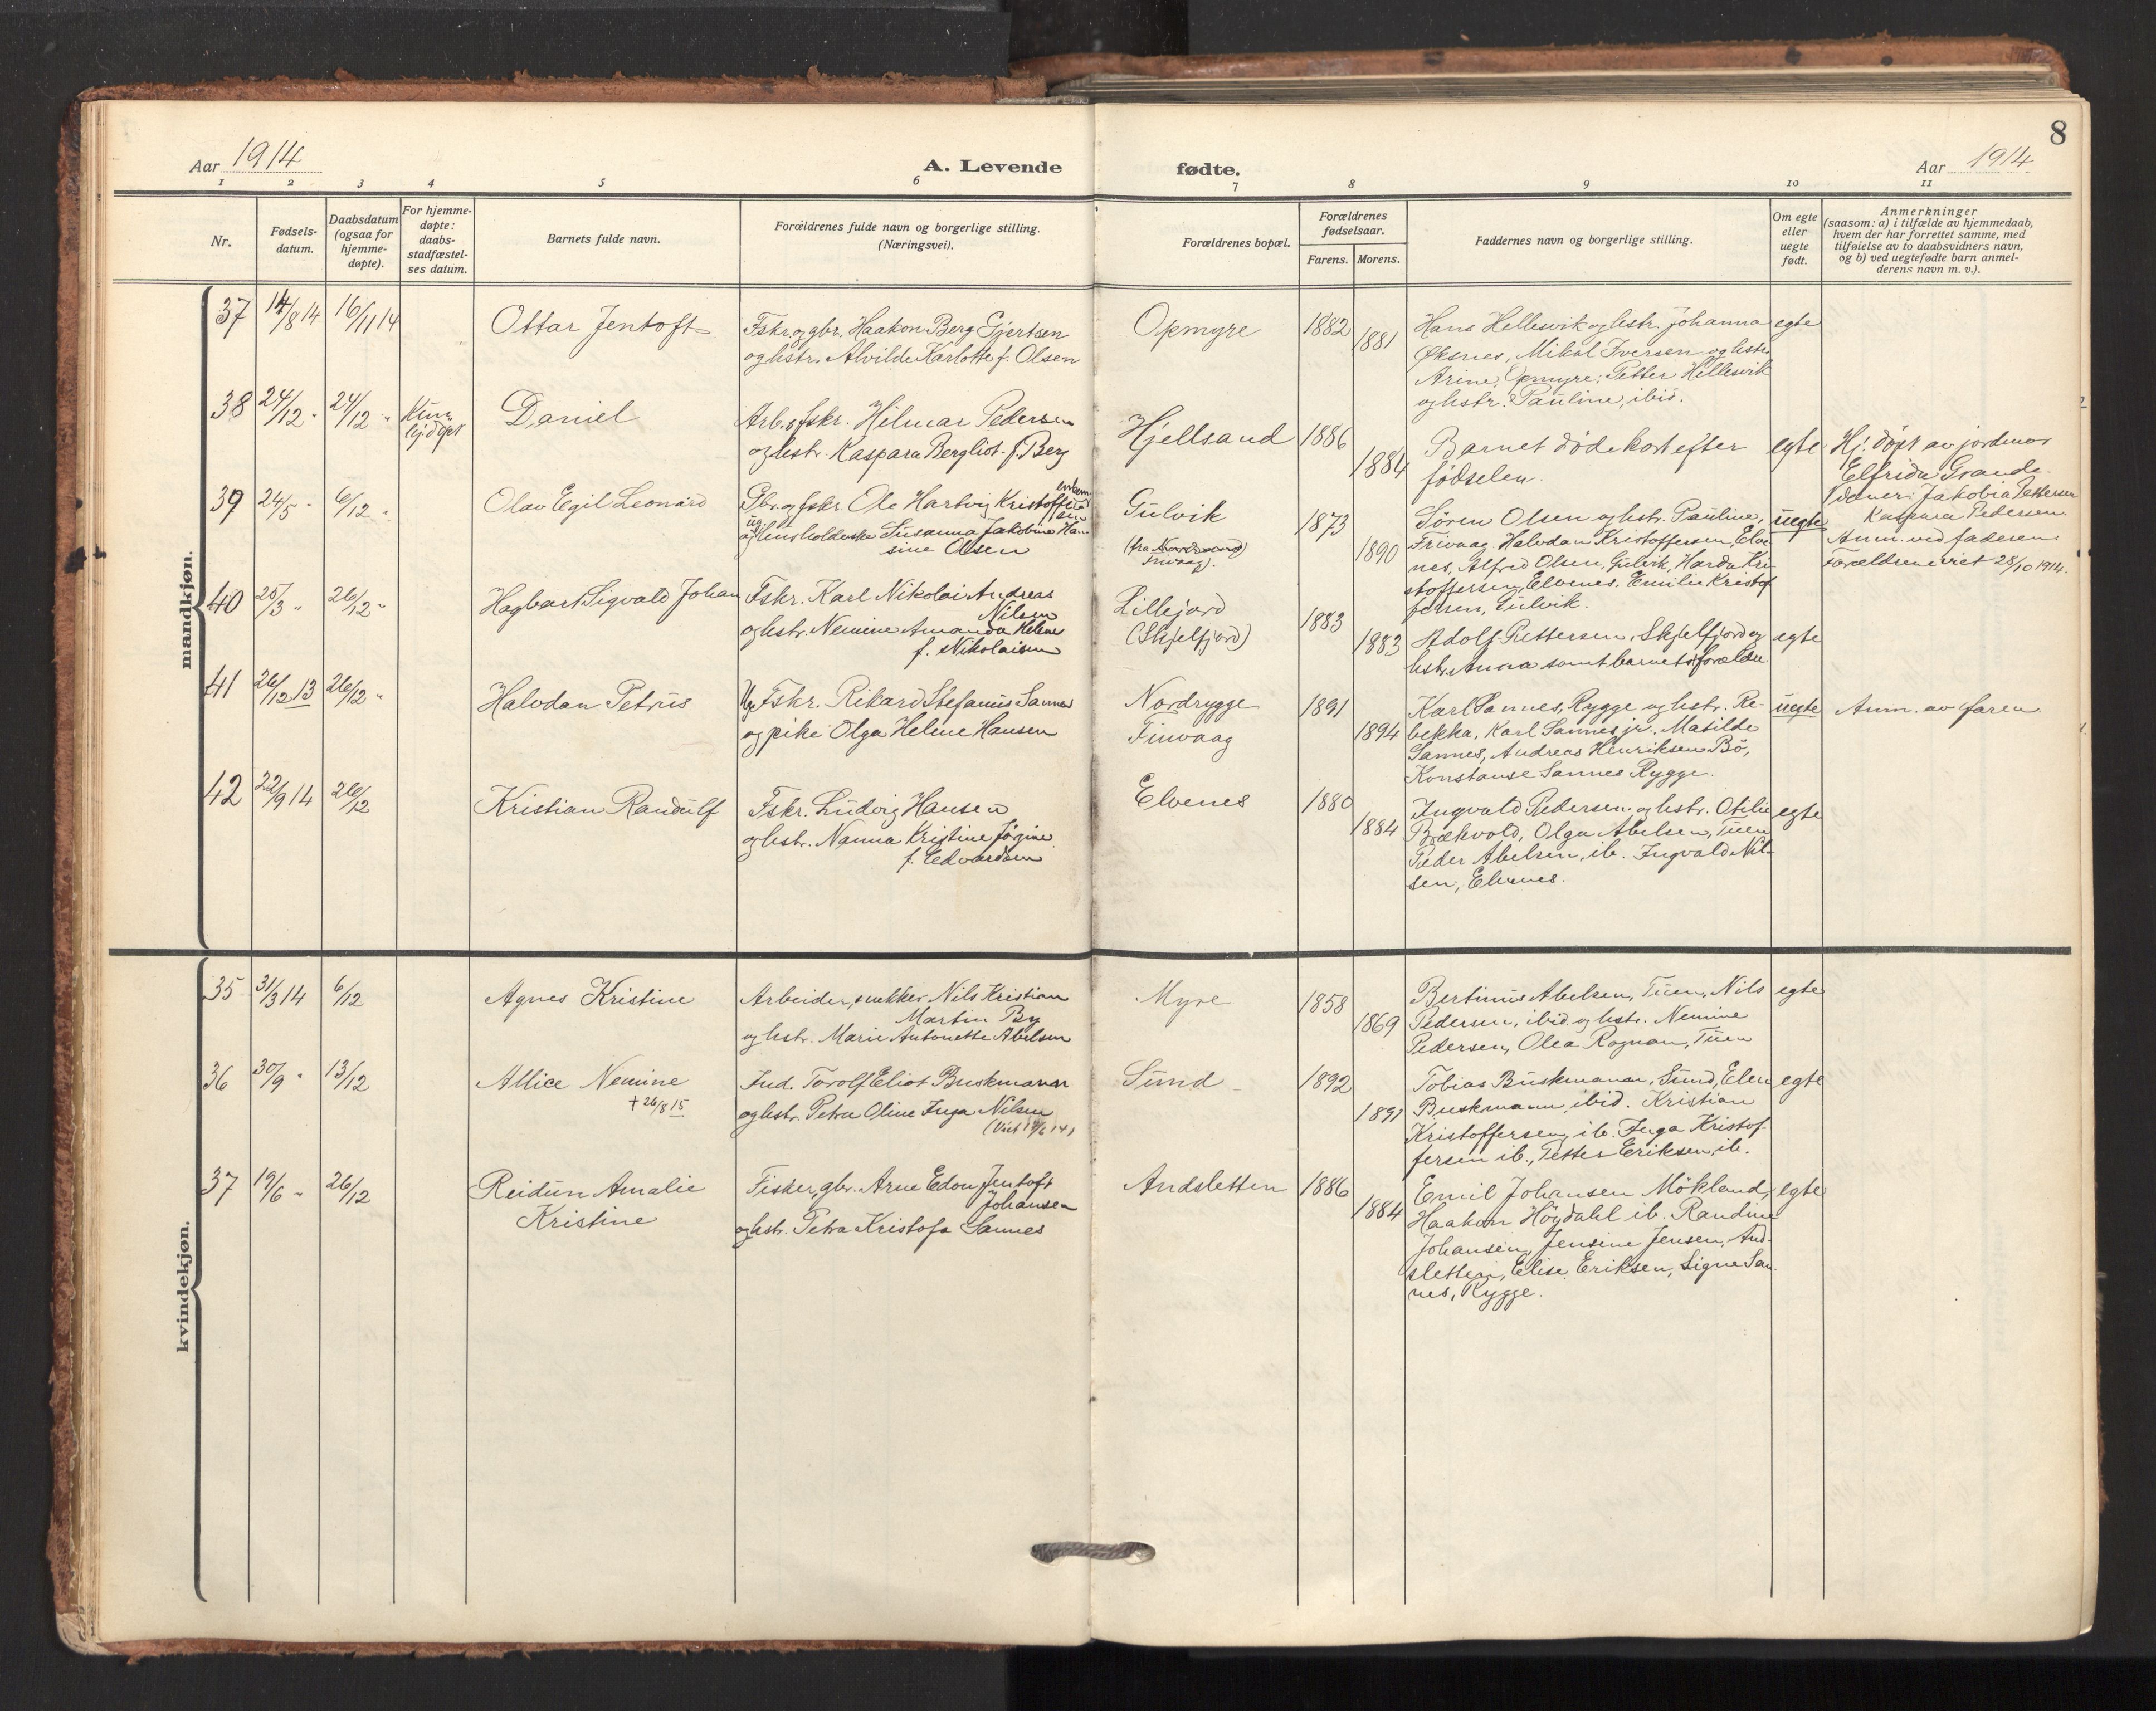 8
Aar 1914
A. Levende
fødte.
Aar 1914
1 2 3 4 5 6 7 8 9 10 11
Nr.
Fødsels-
datum.
Daabsdatum
(ogsaa for
hjemme-
døpte).
For hjemme-
døpte:
daabs-
stadfæstel-
ses datum.
Barnets fulde navn.
Forældrenes fulde navn og borgerlige stilling.
(Næringsvei).
Forældrenes bopæl.
Forældrenes
fødselsaar.
Farens. Morens.
Faddernes navn og borgerlige stilling.
Om egte
eller
uegte
født.
Anmerkninger
(saasom: a) i tilfælde av hjemmedaab,
hvem der har forrettet samme, med
tilføielse av to daabsvidners navn,
og b) ved uegtefødte barn anmel-
derens navn m. v.).
mandkjøn.
37 14/8 14 16/11 14 Ottar Jentoft
Fskr. og gbr. Haakon Berg Gjertsen
og hstr. Alvilde Karlotte f. Olsen
Opmyre 1882 1881
Hans Hellesvik og hstr. Johanna
Øksnes, Mikal Iversen og hstr.
Arine, Opmyre; Petter Hellesvik
og hstr. Pauline, ibid.
egte
38 24/12 " 24/12 " Kun
hj.døpt
Daniel
Arb. & fskr. Hilmar Pedersen
og hstr. Kaspara Bergliot f. Berg
Hjellsand 1886 1884
Barnet döde kort efter
födselen.
egte
Hj. döpt av jordmor
Elfrida Grande.
Vidner: Jakobia Pettersen
Kaspara Pedersen.
39 24/5 " 6/12 " Olav Egil Leonard
Gbr. og fskr. Ole Hartvig Kristoffersen
ug.
og husholderske Susanna Jakobine Han
sine Olsen
Gulvik
(fra Nordsand)
Frivaag).
1873 1890
Søren Olsen og hstr. Pauline,
Frivaag. Halvdan Kristoffersen, Elve-
nes, Alfred Olsen, Gulvik, Harda Kri-
stoffersen, Elvenes. Emilie Kristof
fersen, Gulvik.
uegte
Anm. ved faderen
Forældrene viet 28/10 1914.
40 25/3 " 26/12 " Hagbart Sigvald Johan
Fskr. Karl Nikolai Andreas
Nilsen
og hstr. Nemine Amanda Helene
f. Nikolaisen
Lillejord
(Skjelfjord)
1883 1983
Adolf Pettersen, Skjelfjord og
hstr. Anna samt barnets forældre.
egte
41 26/12 13 26/12 " Halvdan Petrus
Ug. Fskr. Rikard Stefanus Sannes
og pike Olga Helene Hansen
Nordrygge
Finvaag
1891 1894
Karl Sannes, Rygge og hstr. Re-
bekka, Karl Sannes jr., Matilde
Sannes, Andreas Henriksen Bö,
Konstanse Sannes Rygge.
uegte
Anm. av faren.
42 22/9 14 26/12 Kristian Randulf
Fskr. Ludvig Hansen
og hstr. Nanna Kristine Jörgine
f. Edvardsen
Elvenes 1880 1884
Ingvald Pedersen og hstr. Otilie
Brækvold, Olga Abelsen, Tuen
Peder Abelsen, ib. Ingvald Nil-
sen, Elvenes.
egte
kvindekjøn.
35 31/3 14 6/12 Agnes Kristine
Arbeider, snekker Nils Kristian
Martin By
og hstr. Marie Antonette Abelsen
Myre 1858 1869
Bertinus Abelsen, Tuen, Nils
Pedersen, ibid og hstr. Nemine
Pedersen, Olea Rognan, Tuen
egte
36 30/9 " 13/12 Allice Nemine
+ 26/8 15
Ind. Torolf Eliot Buskmann
og hstr. Petra Oline Inga Nilsen
Sund 1892 1891
Tobias Buskmann, Sund, Elen
Buskmann, ibid. Kristian
Kristoffersen, ib. Inga Kristof-
fersen ib., Petter Eriksen, ib.
egte
37 19/6 " 26/12 Reidun Amalie
Kristine
Fisker, gbr. Arne Edon Jentoft
Johansen
og hstr. Petra Kristofa Sannes
Andsletten 1886 1884
Emil Johansen Mökland,
Haakon Höydahl ib. Randine
Johansen, Jensine Jensen, And-
sletten, Elise Eriksen, Signe San
nes, Rygge.
egte